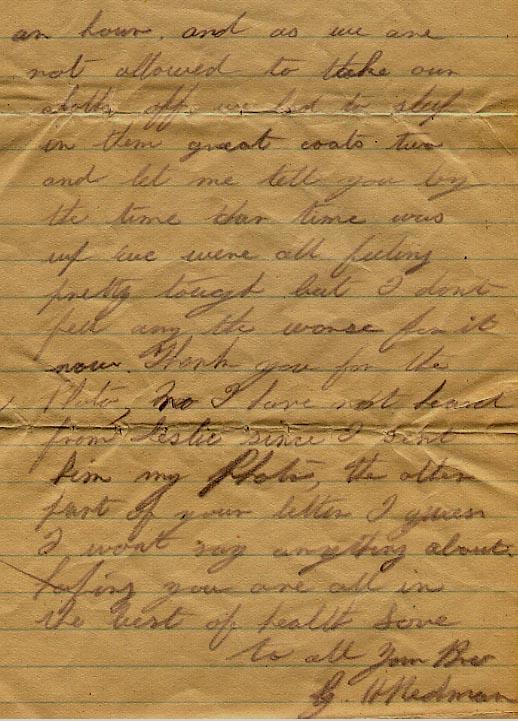 an hour. and as we are
not allowed to take our
cloths off we had to sleep
in them great coats two
and let me tell you by
the time our time was
up we were all feeling
pretty tough but I dont
feel any the worse for it
now. Thank you for the
Photo, no I have not heard
from Leslie since I sent
him my Photo, the other
part of your letter I guess
I wont say anything about.
hoping you are all in
the best of health Love
to all Your Bro
G. H Redman